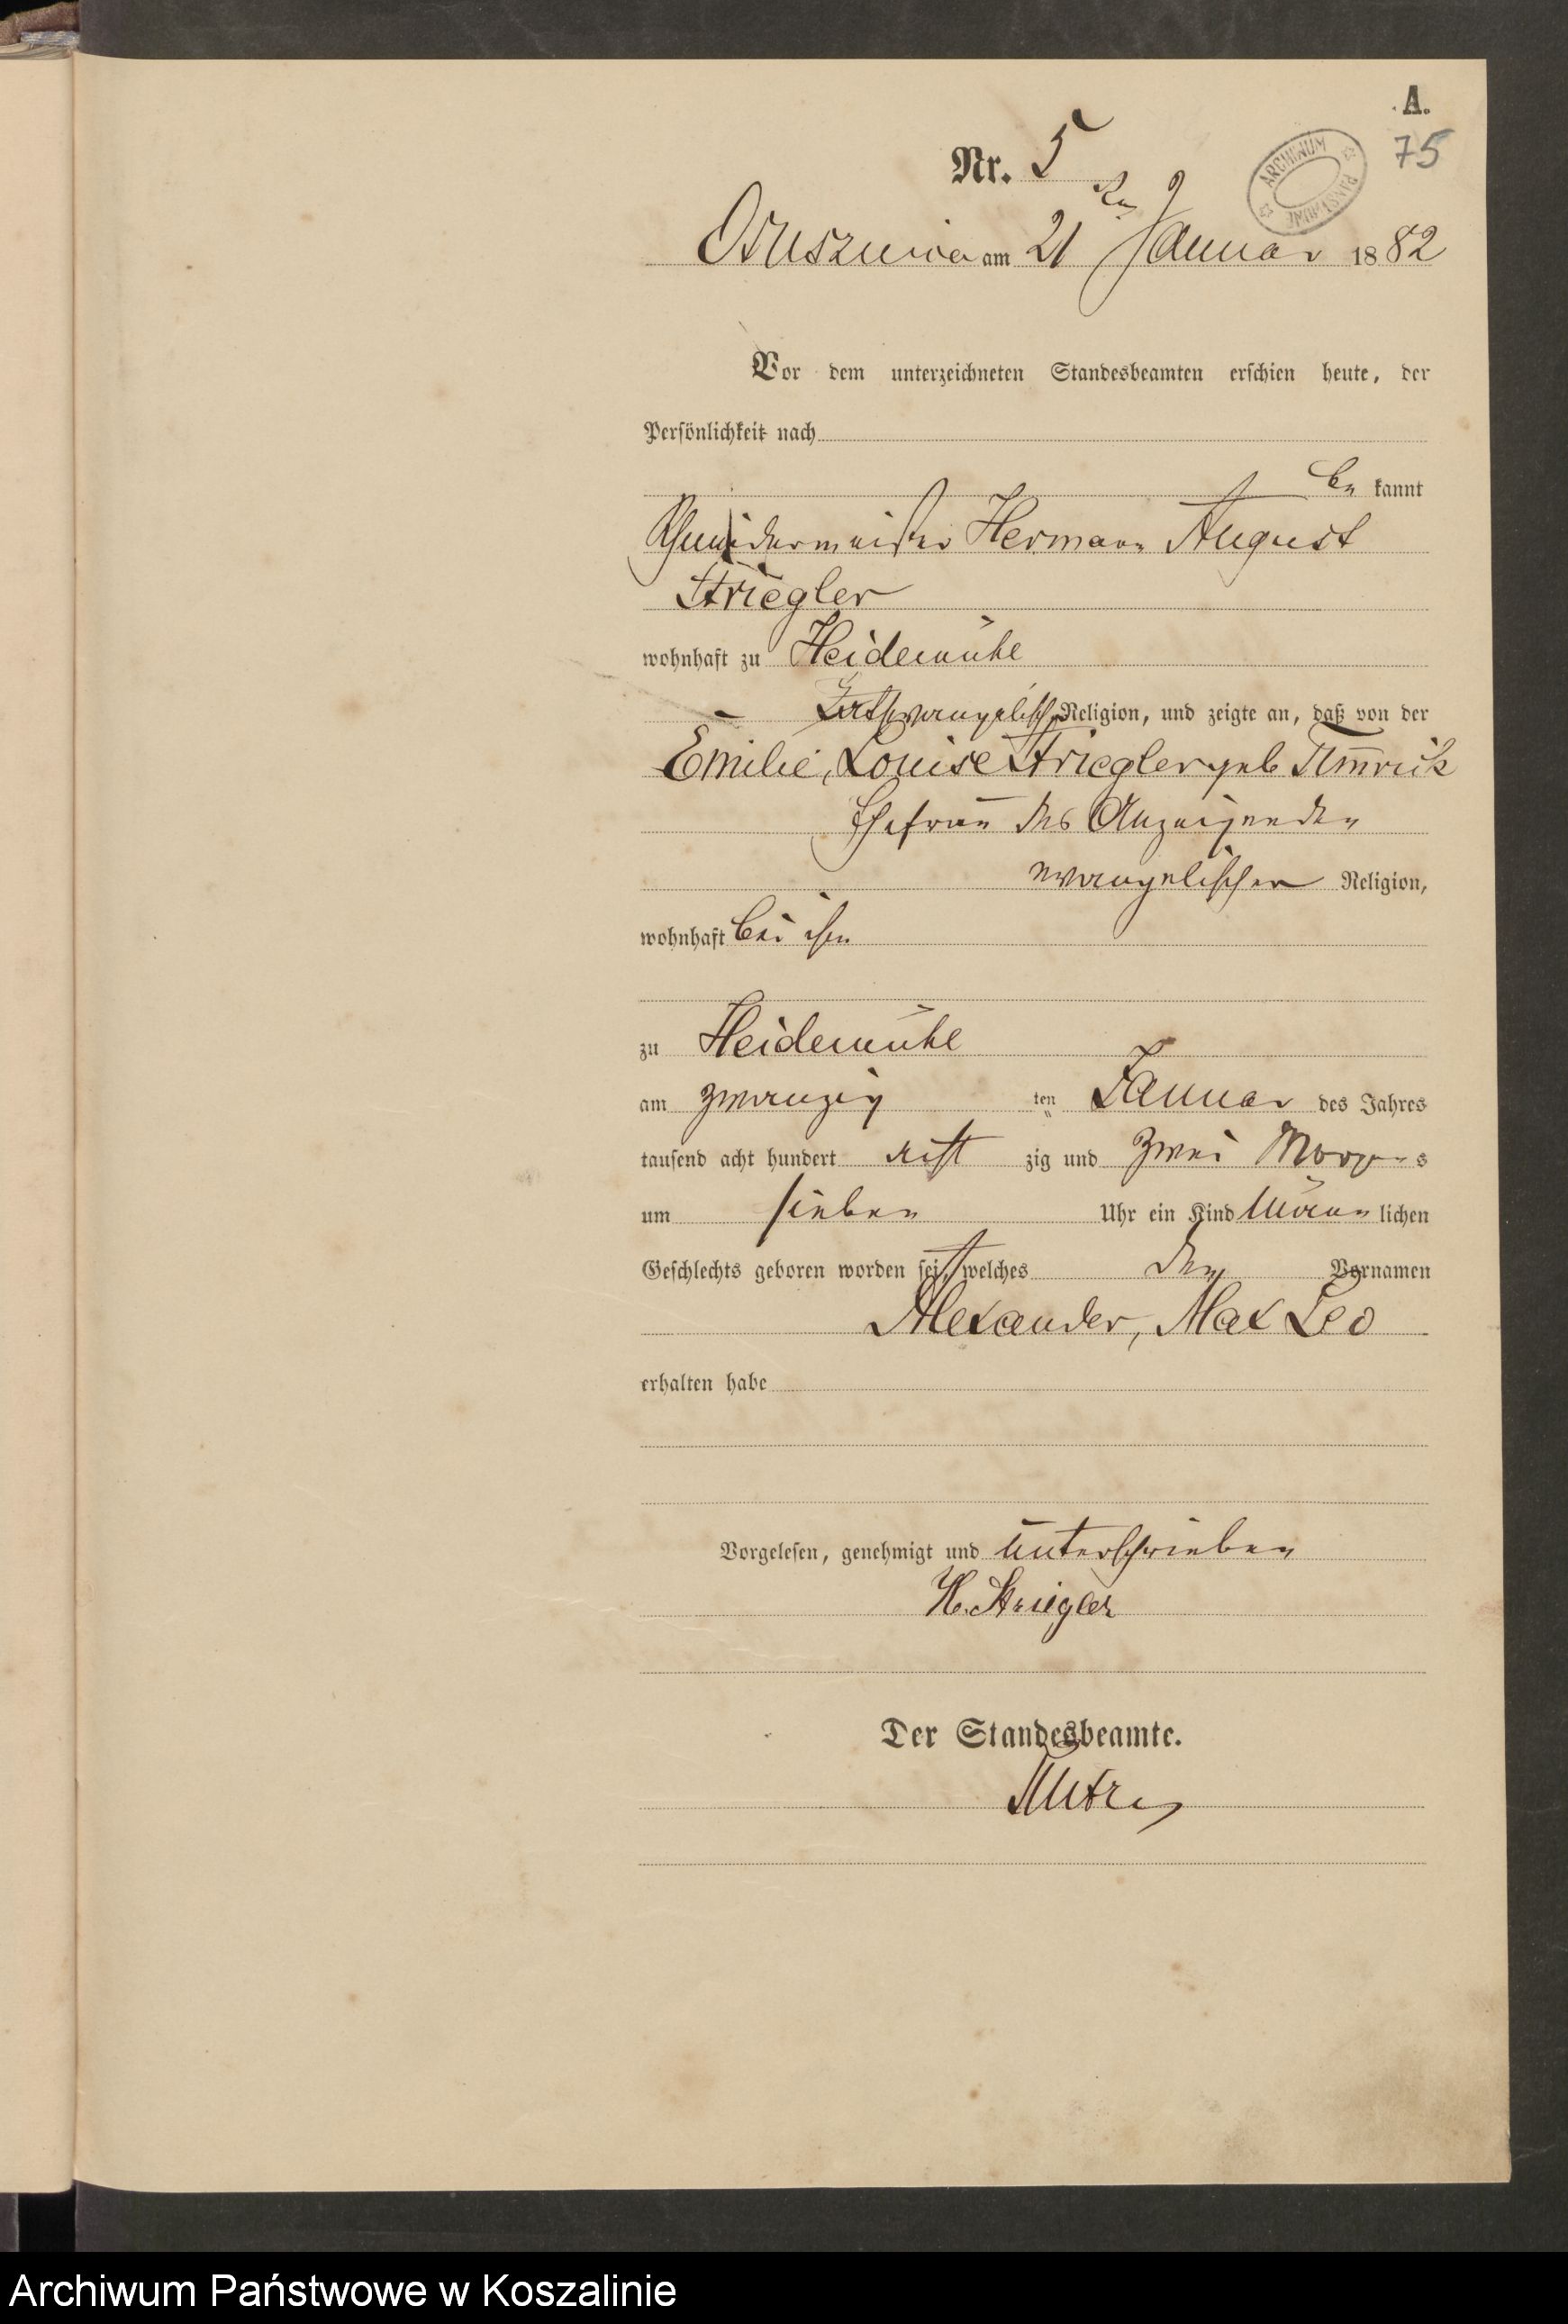 A.
75
Nr. 5
ARCHIWUM PAŃSTWOWE
am 21 ten Januar 1882
Vor dem unterzeichneten Standesbeamten erschien heute, der
Persönlichkeit nach
be kannt
Schneidermeister Hermann August
Striegler
wohnhaft zu Heidemühl
evangelischer Religion, und zeigte an, daß von der
Emilie, Louise Striegler geb
Ehefrau des Anzeigenden
evangelischer Religion,
wohnhaft bei ihm
zu Heidemühl
am zwanzig ten Januar des Jahres
tausend acht hundert acht zig und zwei Morgens
um sieben Uhr ein Kind männ lichen
Geschlechts geboren worden sei, welches den Vornamen
Alexander, Max Leo
erhalten habe
Vorgelesen, genehmigt und unterschrieben
H. Striegler
Der Standesbeamte.
Archiwum Państwowe w Koszalinie